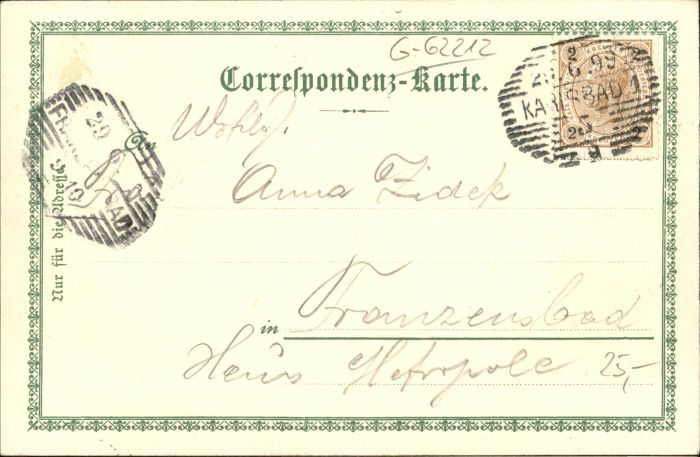 G-62212
Correspondenz-Karte.
2
6.99
KARLSBAD 1
An
Wohlg.
Anna Zidek
Nur für die Adresse
29
in Franzensbad
Haus Metropole 25,-